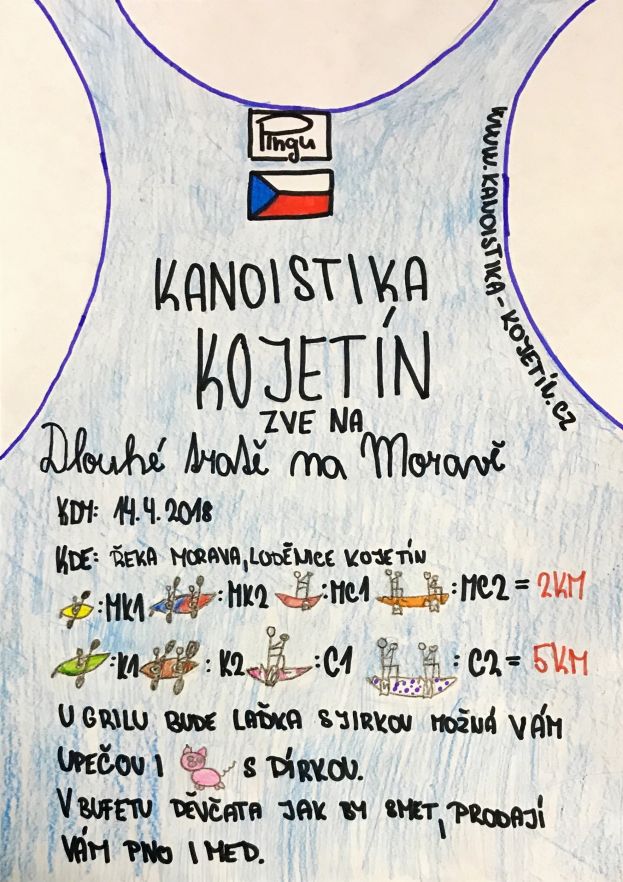 Pingu
www.KANOISTIKA-KOJETÍN.CZ
KANOISTIKA
KOJETÍN
ZVE NA
Dlouhé tratě na Moravě
KDY: 14.4.2018
KDE: ŘEKA MORAVA, LODĚNICE KOJETÍN
:MK1 :MK2 :MC1 :MC2 = 2KM
:K1 : K2 :C1 : C2 = 5KM
U GRILU BUDE LAĎKA S JIRKOU MOŽNÁ VÁM
UPEČOU I S DÍRKOU.
V BUFETU DĚVČATA JAK BY SMET, PRODAJÍ
VÁM PIVO I MED.